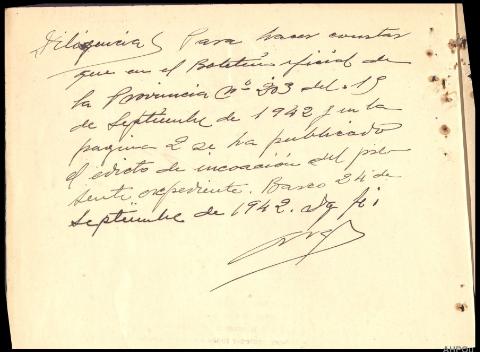 Diligencia Para hacer constar
que en el Boletin oficial de
la Provincia nº 203 del 19
de Septiembre de 1942 y en la
pagina 2 se ha publicado
el edicto de incoación del pre-
sente expediente. Barco 24 de
Septiembre de 1942. Doy fe;
AHPOu